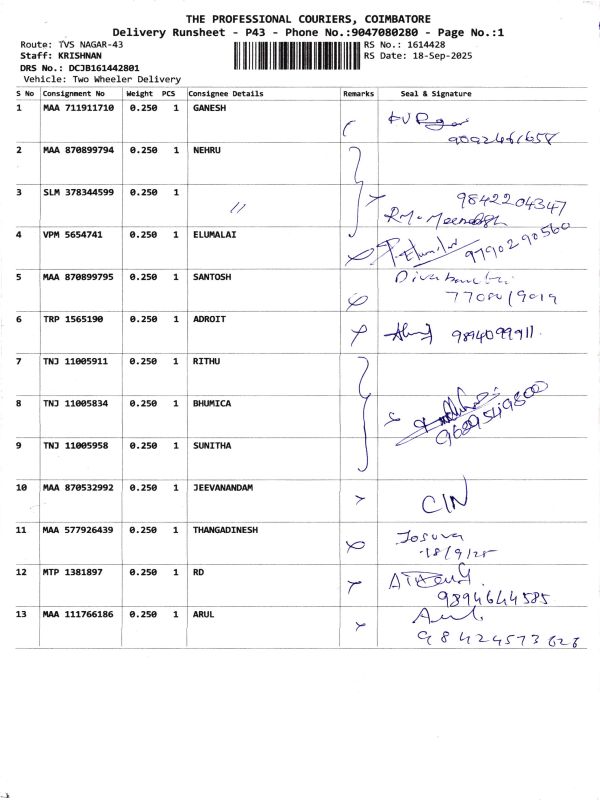 THE PROFESSIONAL COURIERS, COIMBATORE
Delivery Runsheet - P43 - Phone No.:9047080280 - Page No.:1
Route: TVS NAGAR-43 RS No.: 1614428
Staff: KRISHNAN RS Date: 18-Sep-2025
DRS No.: DCJB161442801
Vehicle: Two Wheeler Delivery
S No Consignment No Weight PCS Consignee Details Remarks Seal & Signature
1 MAA 711911710 0.250 1 GANESH
9092461658
2 MAA 870899794 0.250 1 NEHRU
3 SLM 378344599 0.250 1 // 9842204347
4 VPM 5654741 0.250 1 ELUMALAI 9790290560
5 MAA 870899795 0.250 1 SANTOSH
6 TRP 1565190 0.250 1 ADROIT 9894099911
7 TNJ 11005911 0.250 1 RITHU
8 TNJ 11005834 0.250 1 BHUMICA 9689549800
9 TNJ 11005958 0.250 1 SUNITHA
10 MAA 870532992 0.250 1 JEEVANANDAM CIN
11 MAA 577926439 0.250 1 THANGADINESH Josuva
18/9/25
12 MTP 1381897 0.250 1 RD
9894644585
13 MAA 111766186 0.250 1 ARUL Arul.
98424573626